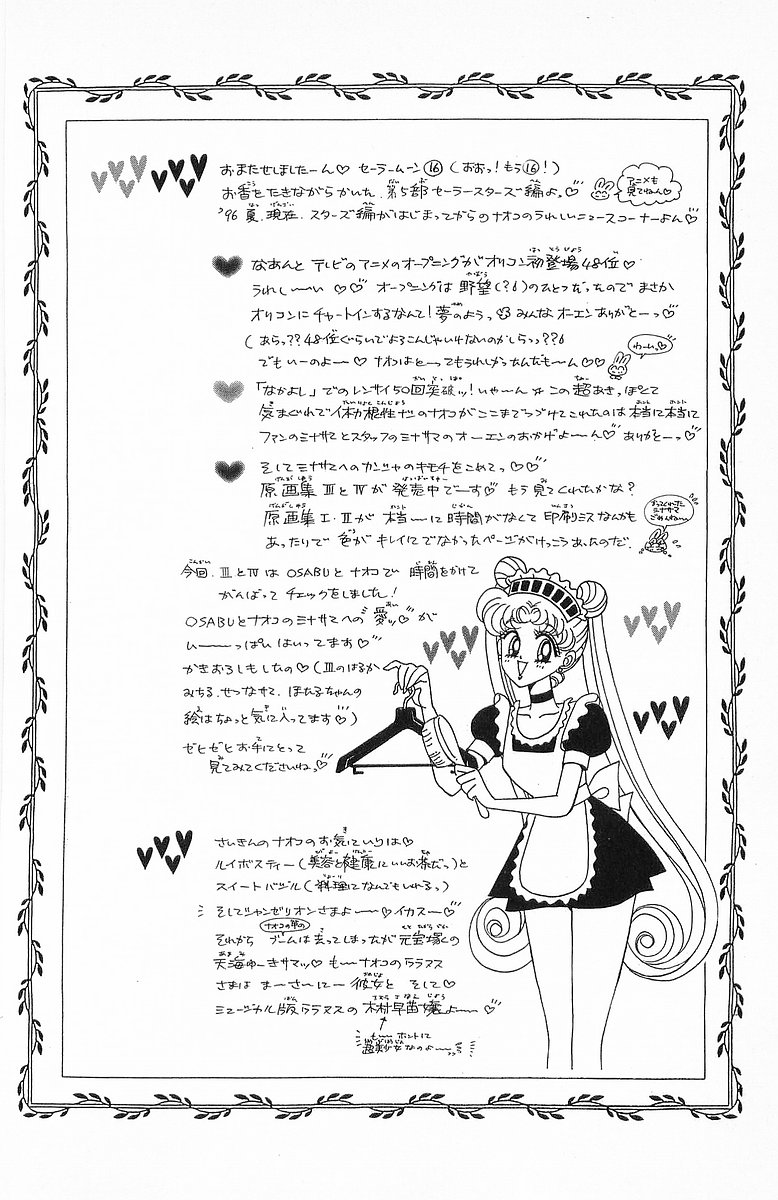 おまたせしましたーん♡ セーラームーン⑯（おおっ！もう⑯！）
お香をたきながらかいた、第5部 セーラースターズ編よ。♡
アニメも
見てねん♡
'96 夏、現在、スターズ編がはじまってからのナオコのうれしいニュースコーナーよん♡
♥ なあんと テレビのアニメのオープニングがオリコン初登場48位♡
うれしーい ♡♡ オープニングは 野望(?!)のひとつだったので まさか
オリコンに チャートインするなんて！夢のようっ みんな オーエン ありがとーっ♡
（あらっ??48位ぐらいでよろこんじゃいけないのかしらっ??
わーい♡
でも いーのよー♡ ナオコは とーってもうれしかったんだもーん♡♡
♥ 「なかよし」での レンサイ50回突破ッ！いやーん この超あきっぽくて
気まぐれで体力根性ナシのナオコが ここまでつづけてこれたのは 本当に本当に
ファンのミナサマとスタッフのミナサマの オーエンのおかげよーん♡ ありがとーっ♡
♥ そして ミナサマへの カンシャのキモチを こめてっ♡♡
原画集 III と IV が 発売中でーす♡ もう見てくれたかな？
原画集 I・II が 本当ーに 時間がなくて 印刷ミスなんかも
かってくれた
ミナサマ
ごめんねー
あったりで 色が キレイに でなかったページが けっこうあったのだ。
今回、III と IV は OSABU と ナオコで 時間をかけて
がんばって チェックをしました！
OSABUとナオコのミナサマへの "愛ッ♡"が
いーーっぱい はいってます♡
かきおろしもしたの♡（IIIのはるか
みちる、せつなサマ、ほたるちゃんの
絵は ちょっと気に入ってます♡）
ゼヒゼヒ お手にとって
見てみてくださいねっ♡
さいきんの ナオコの お気にいりは♡
ルイボスティー（美容と健康にいいお茶だっ）と
スイートバジル（料理になんでもいれるっ）
そして シャンゼリオンさまよー♡ イカスー♡
ナオコの中の
それから ブームは 去ってしまったが 元宝塚の
天海ゆーきサマッ♡ もーナオコのララァス
さまは まーさーにー 彼女と そして♡
ミュージカル版 ララァスの 木村早苗嬢よー♡
もーホントに
超美少女なのよー